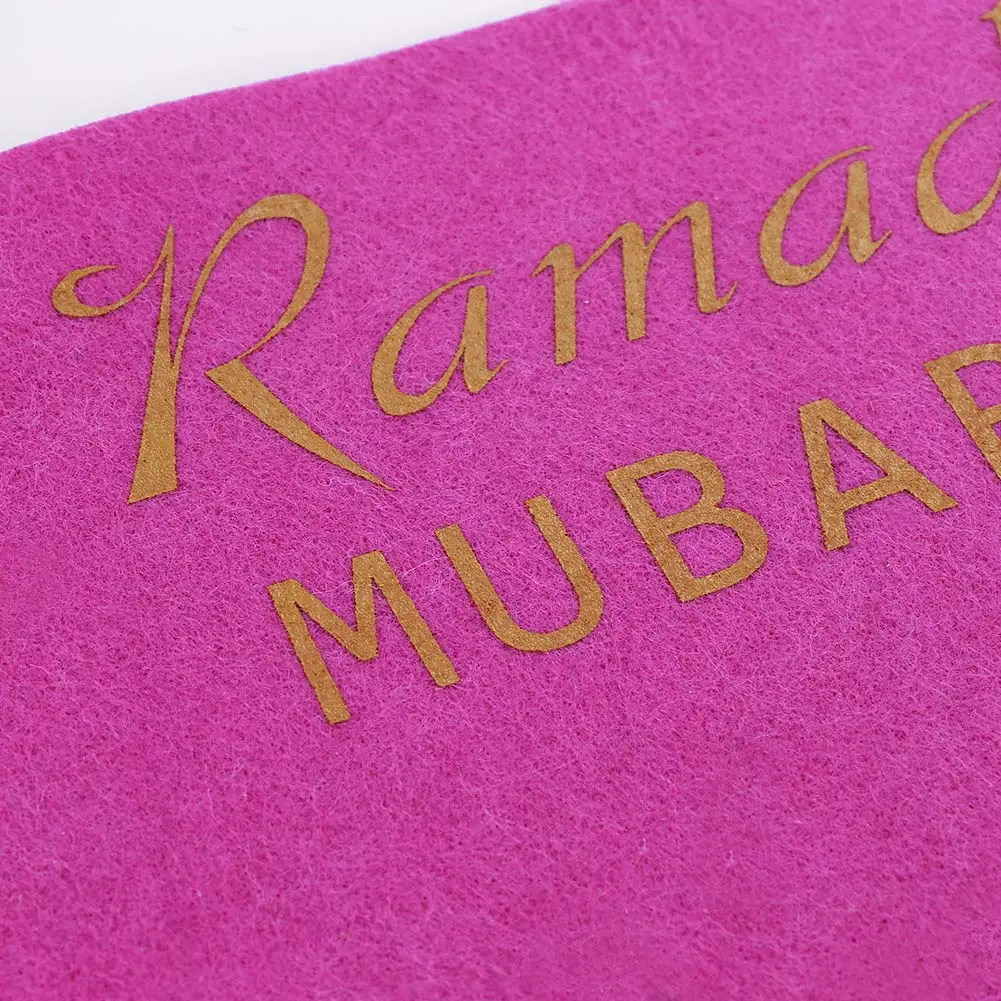 Ramad
MUBAR